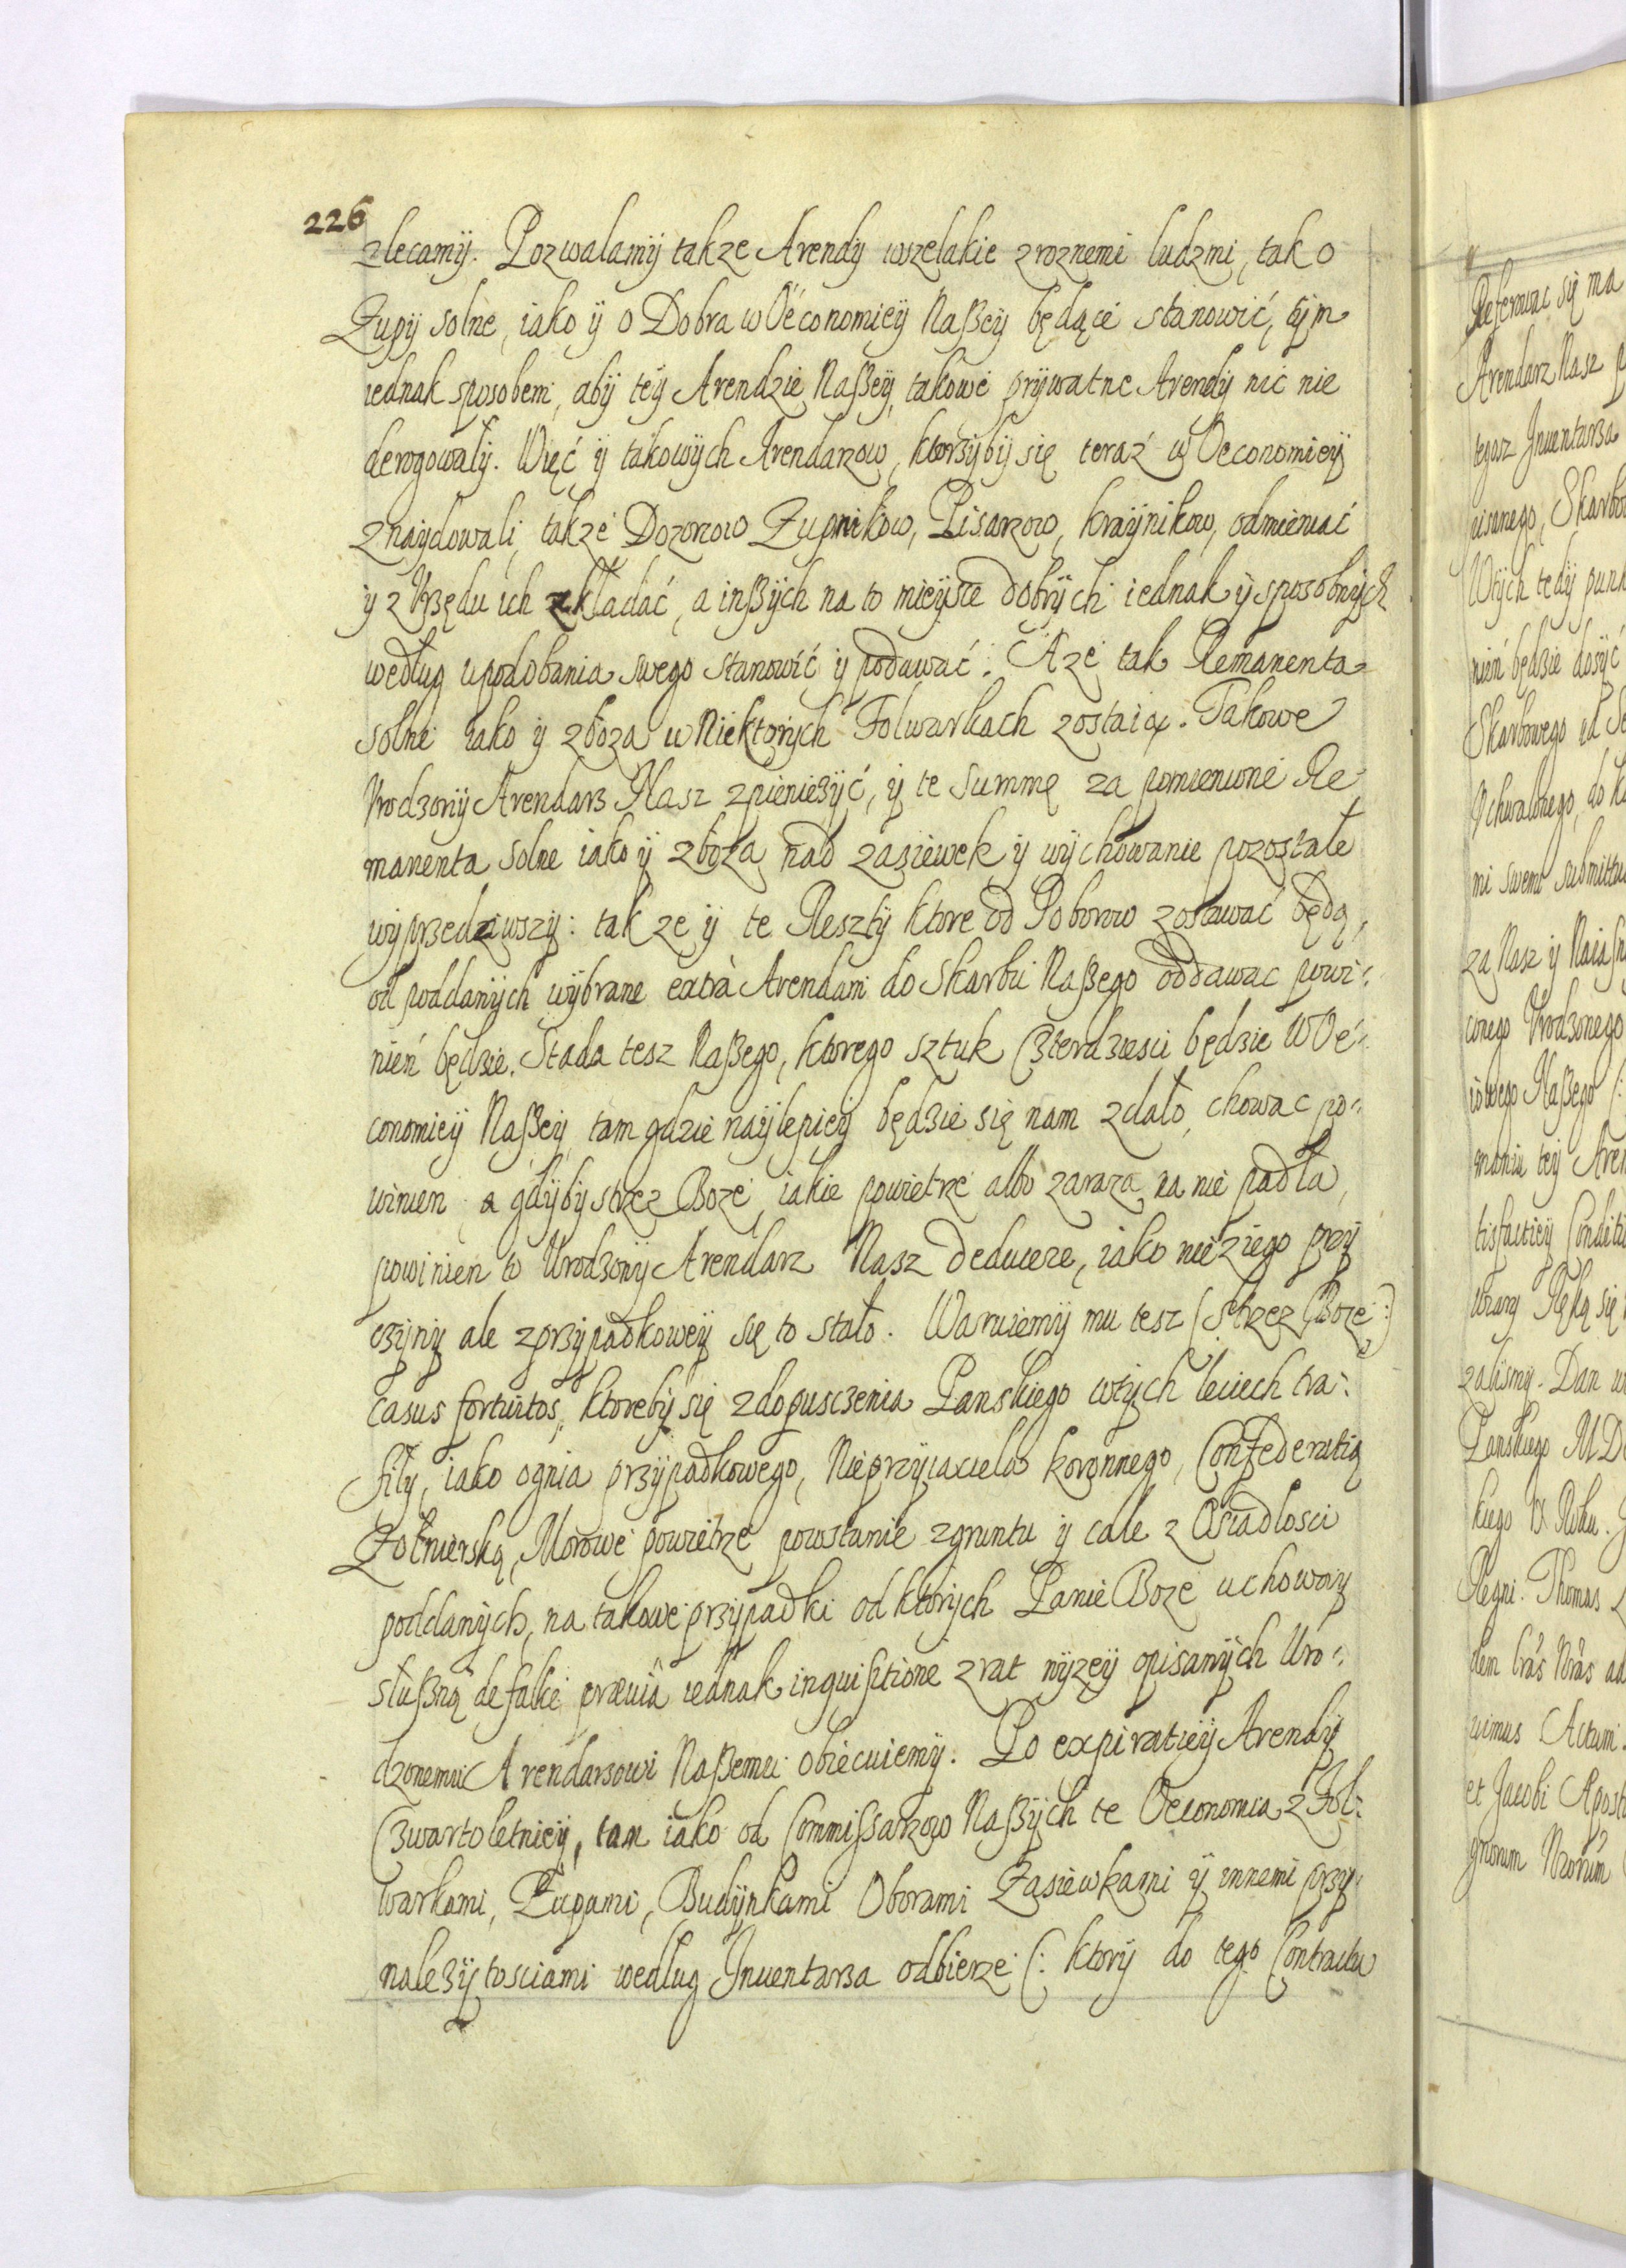 226
zlecamÿ. Pozwalamÿ takze Arendÿ wszelakie z roznemi ludzmi, tak o
Zupÿ solne, iako ÿ o Dobra w Oeconomieÿ Naßeÿ będące stanowić, tÿm
iednak sposobem, abÿ teÿ Arendzie Naßeÿ, takowe prÿwatne Arendÿ nic nie
derogowalÿ. Więć ÿ takowÿch Arendarzow, ktorzÿbÿ się teraź w Oeconomieÿ
znaÿdowali, takze Dozorcow Zupnikow, Pisarzow, kraÿnikow, odmieniać
ÿ z Vrzędu ich zkładać, a inßÿch na to mieÿsce dobrÿch iednak ÿ sposobnÿch
według upodobania swego stanowić ÿ podawać. A ze tak Remanenta
solne iako ÿ zboza w Niektorÿch Folwarkach zostaią. Takowe
Vrodzonÿ Arendarz Nasz zpieniezÿć, ÿ te summę za pomienione Re
manenta solne iako ÿ zboza nad zasiewek ÿ wÿchowanie pozostałe
wÿprzedawszÿ: tak ze ÿ te Resztÿ ktore od Poborow zostawać będą,
od poddanÿch wÿbrane extrà Arendam do Skarbu Naßego oddawac powi:
nień będzie. Stada tesz Naßego, ktorego sztuk Czterdziesci będzie w Oe:
conomieÿ Naßeÿ, tam gdzie naÿlepieÿ będzie się nam zdało, chowac po:
winien, a gdÿbÿ strzez Boze, iakie powietrze albo zaraza na nie padła,
powinien to Urodzonÿ Arendarz Nasz deducere, iako nie z iego przÿ
czÿnÿ ale z przÿpadkoweÿ się to stało. Waruiemÿ mu tesz (: Strzez Boze :)
Casus fortuitos, ktorebÿ się z dopusczenia Panskiego w tÿch leciech tra:
filÿ, iako ognia przÿpadkowego, Nieprzÿiaciela koronnego, Confederatią
Zołnierską, Morowe powietrze powstanie z gruntu ÿ cale z Osiadlosci
poddanÿch, na takowe przÿpadki od ktorÿch Panie Boze uchowaÿ
słußną defalkę præuiâ iednak inquisitione z rat nÿzeÿ opisanÿch Uro:
dzonemu Arendarzowi Naßemu obiecuiemÿ. Po expiratieÿ Arendÿ
Czwartoletnieÿ, tam iako od Commißarzow Naßÿch te Oeconomia z Fol:
warkami, Zupami, Budÿnkami Oborami Zasiewkami ÿ innemi przÿ
nalezÿtosciami według Inuentarza odbierze (: ktorÿ do tego Contractu
Referowac się ma
Arendarz Nasz
tegosz Inuentarza
pisanego, Skarbo
Wtÿch tedÿ punk
nień będzie dosÿć
Skarbowego
Vchwalonego, do
mi swemi submittu
za Nasz ÿ Naiaśn
conego Vrodzonego
iowego Naßego (:
maniu teÿ Aren
tisfactieÿ Conditi
Wzarą Ręką się
zalismÿ. Dan
Panskiego MD
kiego IX Roku.
Regni. Thomas
dem
uimus Actum.
et Jacobi Apost
gnorum Nrorum